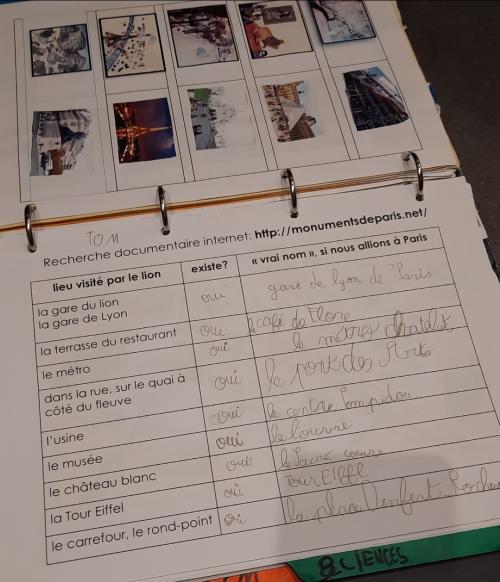 Tom
Recherche documentaire internet: http://monumentsdeparis.net/
lieu visité par le lion existe? « vrai nom », si nous allions à Paris
la gare du lion
la gare de Lyon oui gare de lyon de Paris
la terrasse du restaurant oui le café de Flore
le métro oui le métro chatelat
dans la rue, sur le quai à
côté du fleuve oui le pont des Arts
l'usine oui le centre Pompidou
le musée oui le louvre
le château blanc oui le Sacré coeure
la Tour Eiffel oui Tour Eiffel
le carrefour, le rond-point oui la place Denfert Roche
SCIENCES